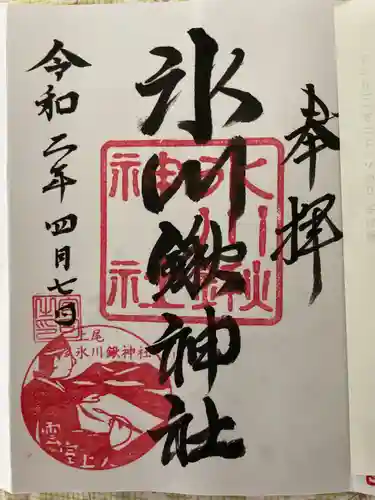 奉拝
氷川鍬神社
氷川鍬
神社
令和二年四月七日
上尾
氷川鍬神社